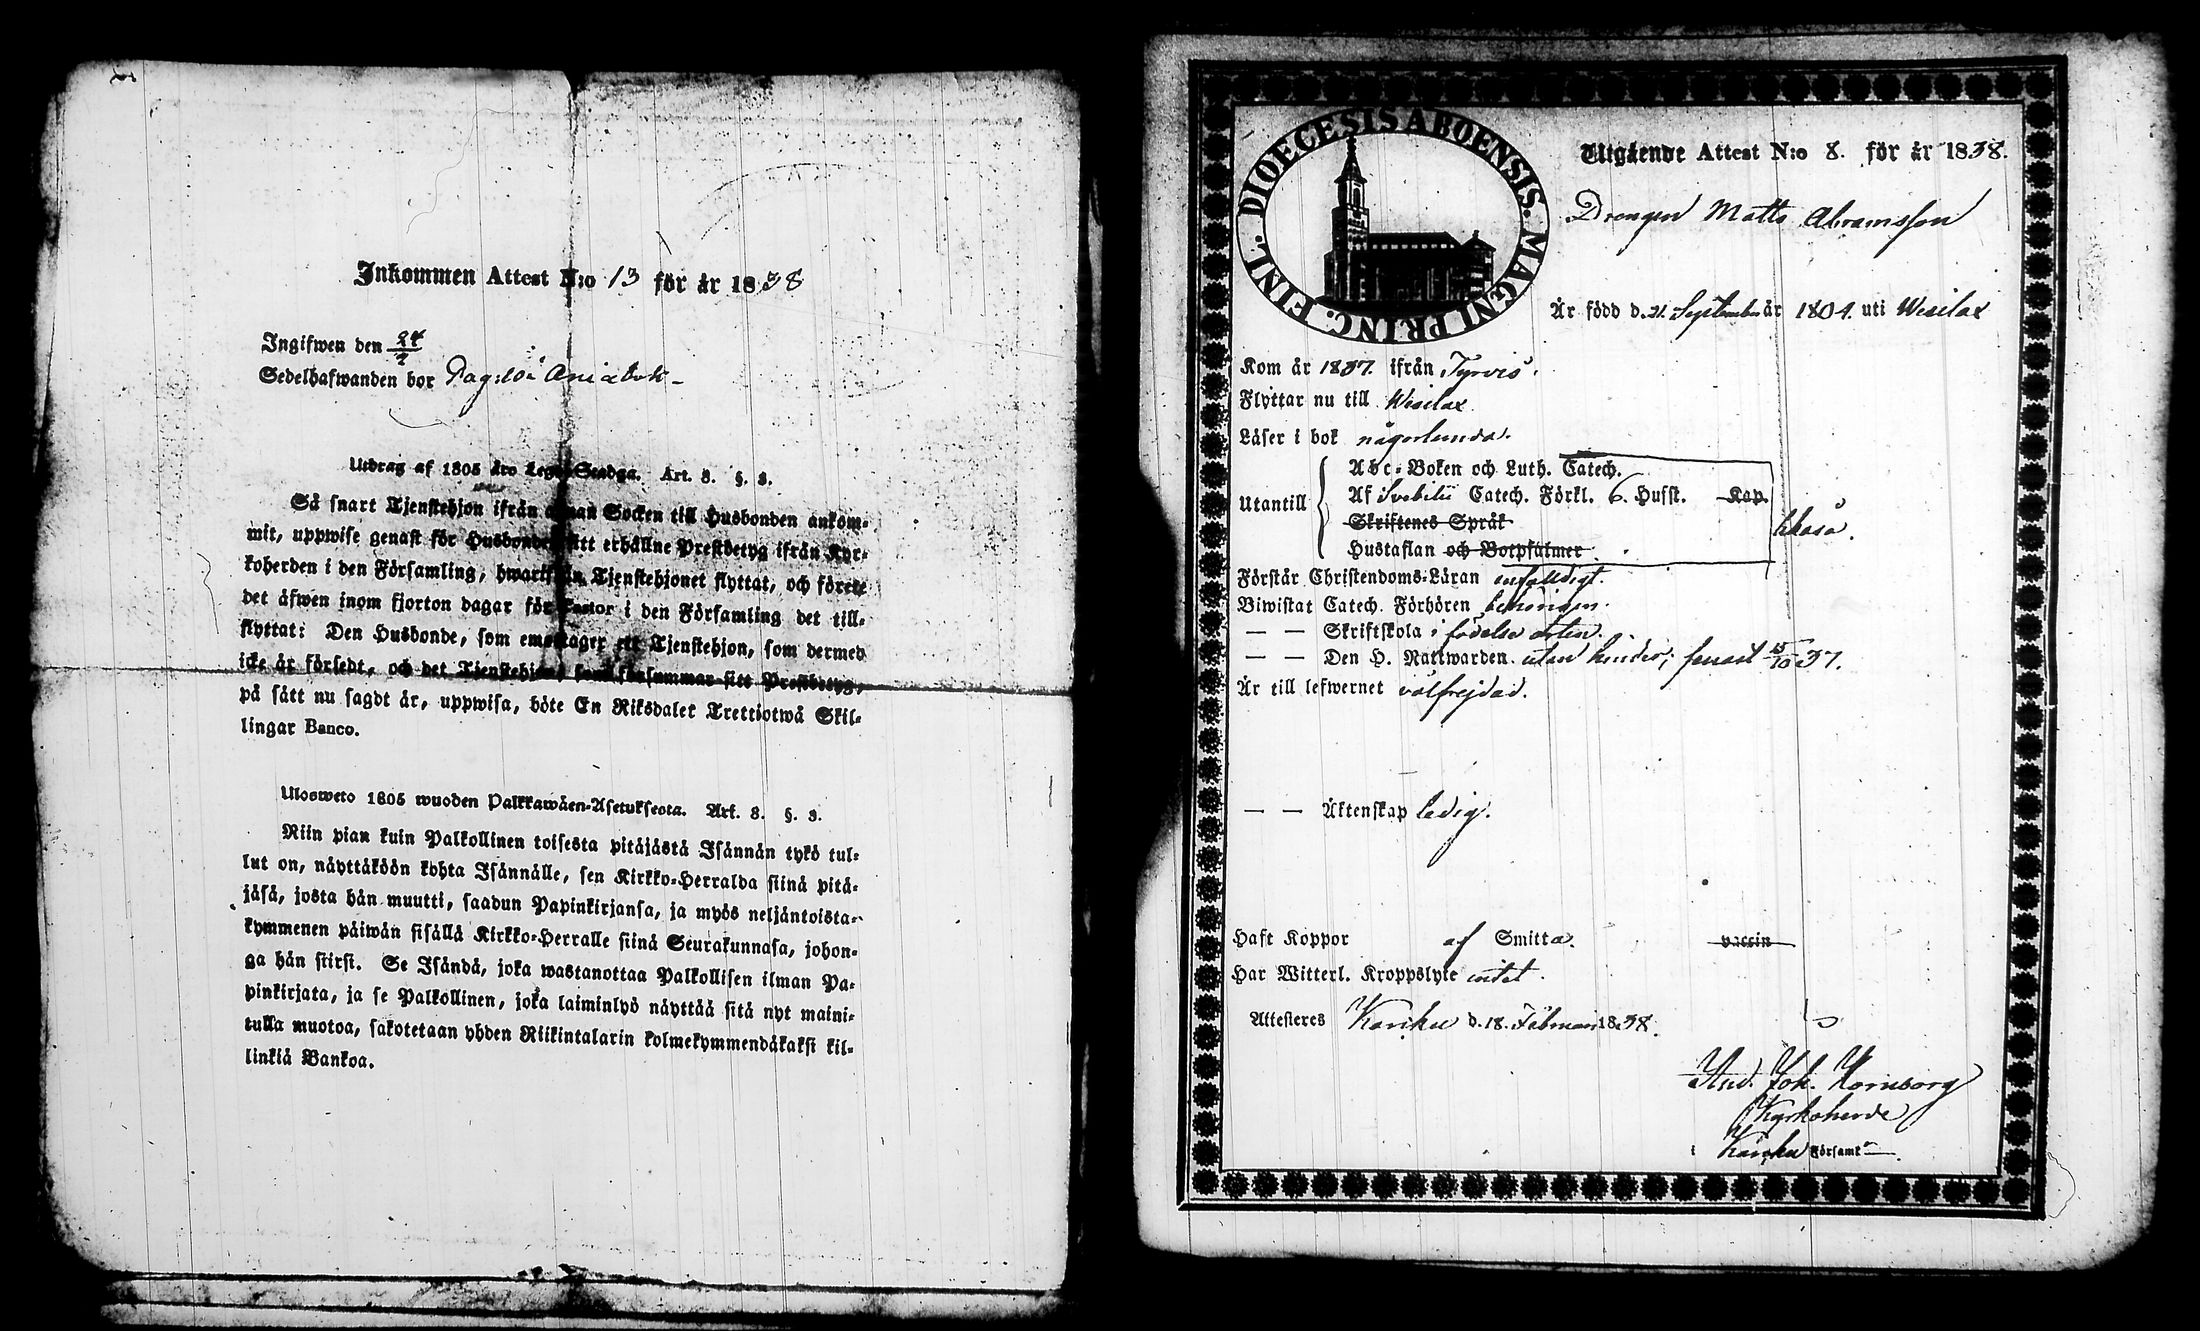 Inkommen Attest N:o 13 för år 1838
Ingifwen den 24
Sedelhafwanden bor
Utdrag af 1805 års Lego-Stadga. Art. 8. §. 3.
Så snart Tjenstehjon ifrån annan Socken till Husbonden ankom-
mit, uppwise genast för Husbonden sitt erhållne Prestbetyg ifrån Kyr-
koherden i den Församling, hwarifrån Tjenstehjonet flyttat, och förete
det äfwen inom fjorton dagar för Pastor i den Församling det till-
flyttat: Den Husbonde, som emottager ett Tjenstehjon, som dermed
icke är försedt, och det Tjenstehjon, som försummar sitt Prestbetyg,
på sätt nu sagdt är, uppwisa, böte En Riksdaler Trettiotwå Skil-
lingar Banco.
Ulosweto 1805 wuoden Palkkawäen-Asetuksesta. Art. 8. §. 3.
Niin pian kuin Palkollinen toisesta pitäjästä Isännän tykö tul-
lut on, näyttäköön kohta Isännälle, sen Kirkko-Herralda siinä pitä-
jäsä, josta hän muutti, saadun Papinkirjansa, ja myös neljäntoista-
kymmenen päiwän sisällä Kirkko-Herralle siinä Seurakunnasa, johon-
ga hän siirsi. Se Isändä, joka wastanottaa Palkollisen ilman Pa-
pinkirjata, ja se Palkollinen, joka laiminlyö näyttää sitä nyt maini-
tulla muotoa, sakotetaan yhden Riikintalarin kolmekymmendäkaksi kil-
linkiä Bankoa.
DIOECESIS ABOENSIS. MAGNI PRINC. FINL.
Utgående Attest N:o 8. för år 1838.
Drengen Matts Abramsson
Är född d. 21. September år 1804. uti Wesilax
Kom år 1837. ifrån Tyrvis.
Flyttar nu till Wesilax
Läser i bok någorlunda.
Utantill
Abc-Boken och Luth. Catech.
Af Svebilii Catech. Förkl. 6. Hufst. Kap.
Skriftenes Språk
Hustaflan och Botpsalmer
Förstår Christendoms-Läran enfaldigt.
Biwistat Catech. Förhören behörigen.
— — Skriftskola i födelse orten.
— — Den H. Nattwarden utan hinder, senast 15/10 37.
Är till lefwernet välfrejdad.
— — Äktenskap ledig.
Haft Koppor af Smitta. vaccin
Har Witterl. Kroppslyte intet.
Attesteres Karkku d. 18. Februari 1838.
And. Joh. Hornborg
Kyrkoherde
i Karkku Församl